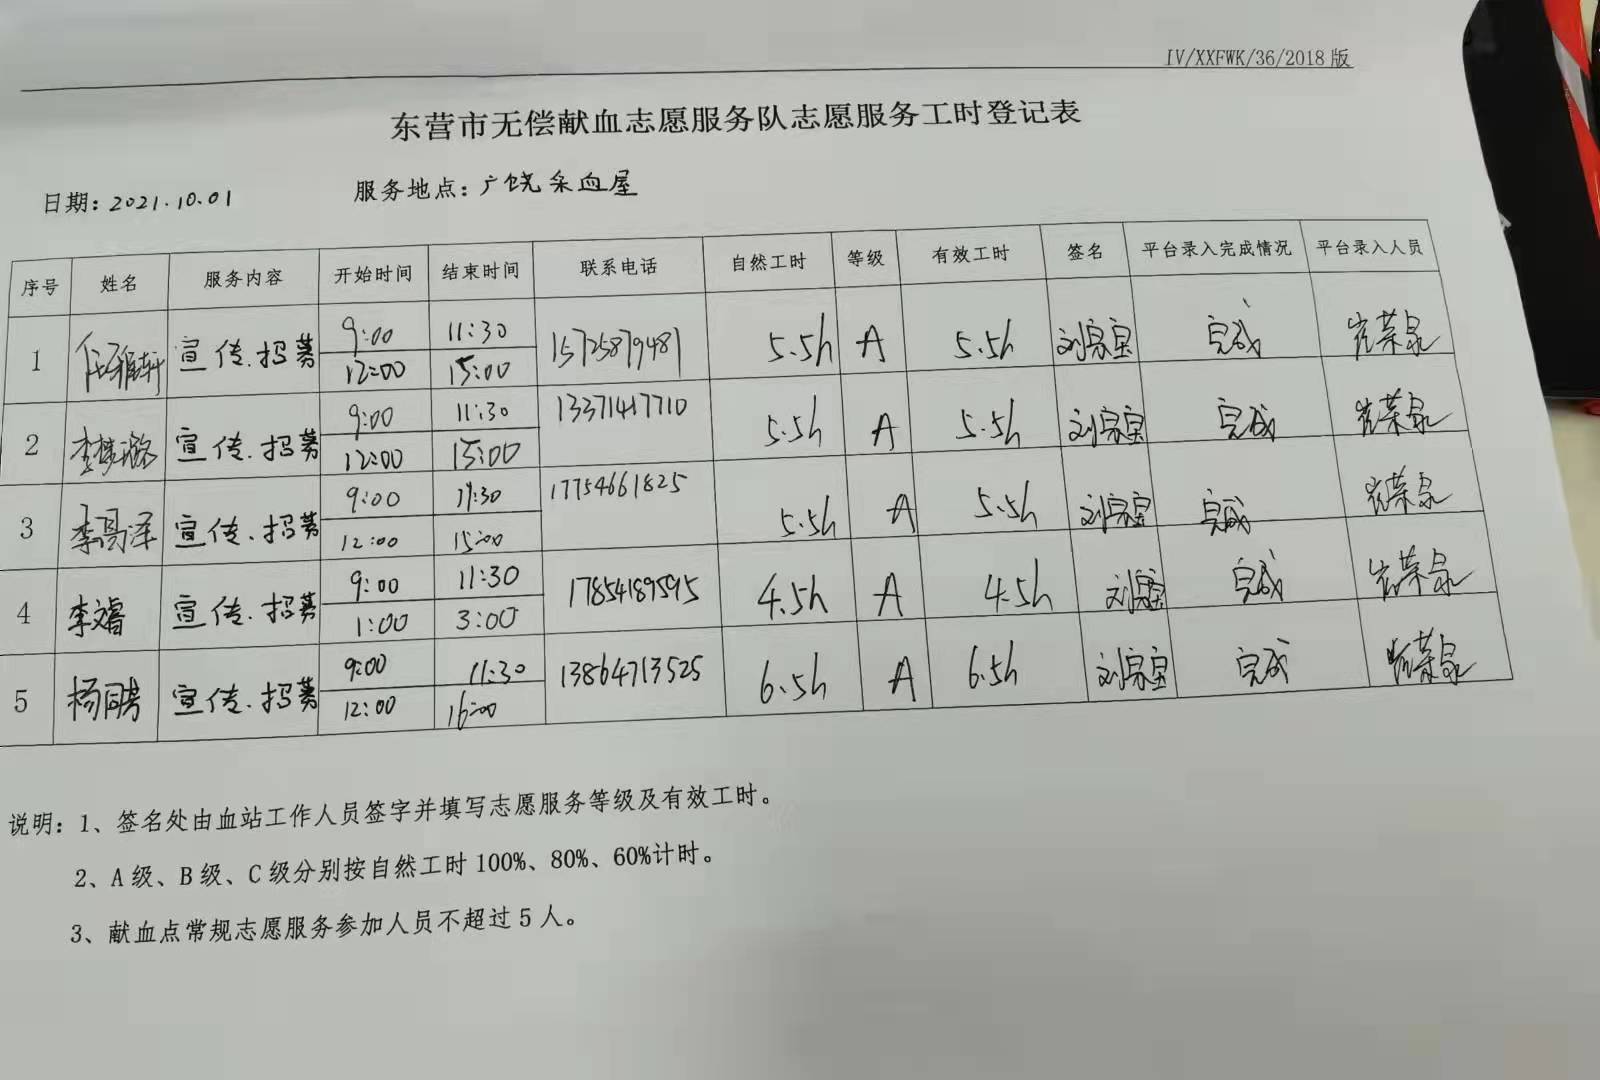 IV/XXFWK/36/2018版
东营市无偿献血志愿服务队志愿服务工时登记表
日期: 2021.10.01 服务地点: 广饶采血屋
序号 姓名 服务内容 开始时间 结束时间 联系电话 自然工时 等级 有效工时 签名 平台录入完成情况 平台录入人员
1 任雅轩 宣传.招募 9:00 11:30 15725879481 5.5h A 5.5h 完成 崔荣泉
12:00 15:00
2 李梦璐 宣传.招募 9:00 11:30 13371417710 5.5h A 5.5h 完成 崔荣泉
12:00 15:00
3 宣传.招募 9:00 11:30 17754661825 5.5h A 5.5h 完成 崔荣泉
12:00 15:00
4 李文睿 宣传.招募 9:00 11:30 17854189595 4.5h A 4.5h 完成 崔荣泉
1:00 3:00
5 宣传.招募 9:00 11:30 13864713525 6.5h A 6.5h 完成 崔荣泉
12:00 16:00
说明: 1、签名处由血站工作人员签字并填写志愿服务等级及有效工时。
2、A级、B级、C级分别按自然工时100%、80%、60%计时。
3、献血点常规志愿服务参加人员不超过5人。